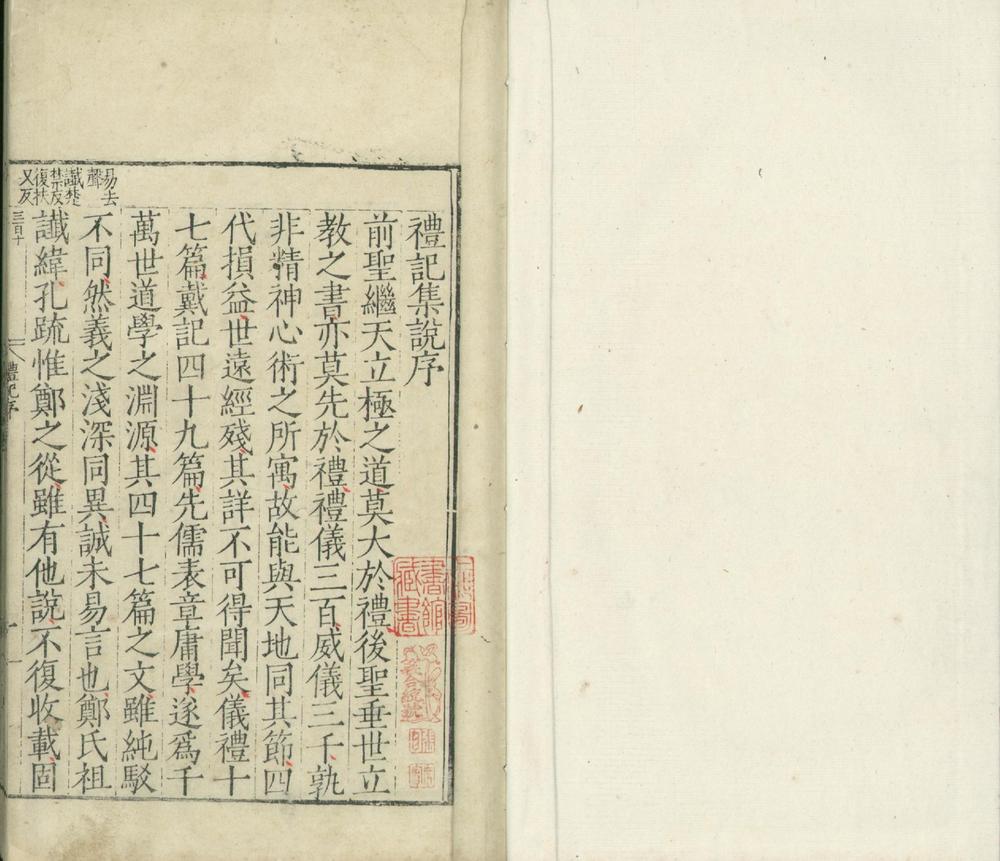 禮記集說序
前聖繼天立極之道莫大於禮後聖垂世立
教之書亦莫先於禮禮儀三百威儀三千孰
非精神心術之所寓故能與天地同其節四
代損益世遠經殘其詳不可得聞矣儀禮十
七篇戴記四十九篇先儒表章庸學遂爲千
萬世道學之淵源其四十七篇之文雖純駁
不同然義之淺深同異誠未易言也鄭氏祖
讖緯孔疏惟鄭之從雖有他說不復收載固
易去
聲
讖楚
禁反
復扶
又反
三百十
禮記序
書館
藏書